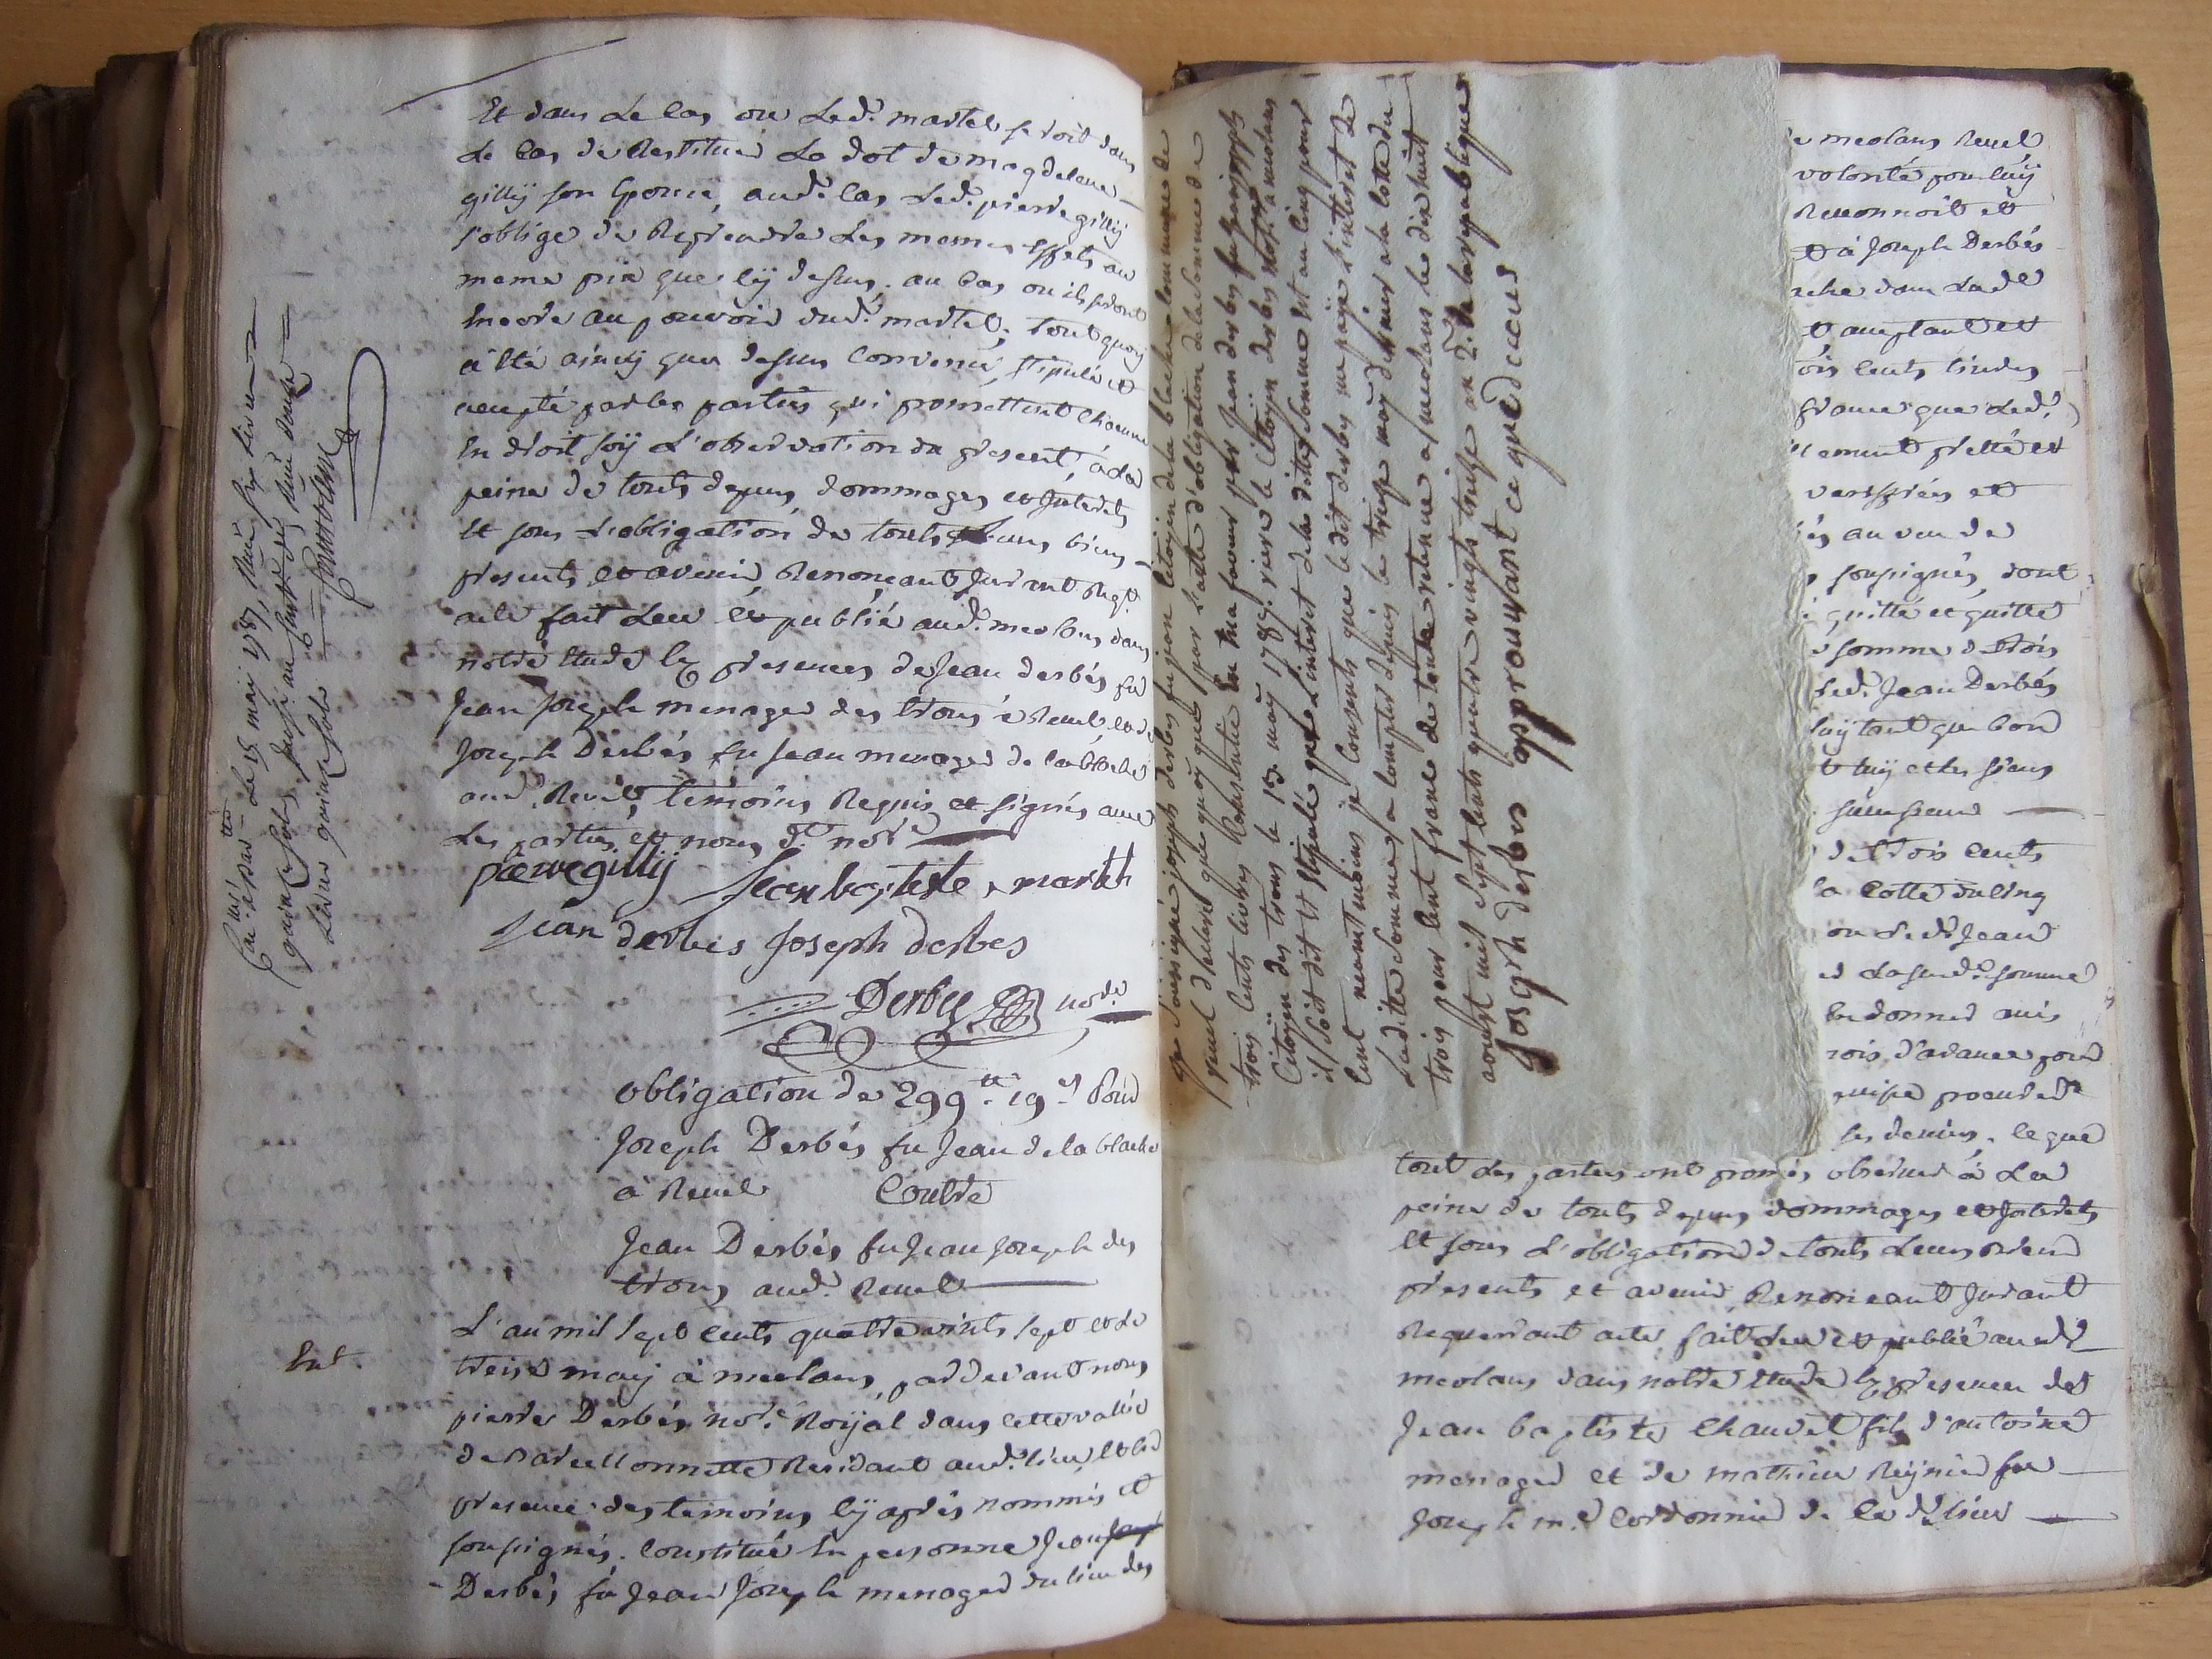 Et dans le Cas ou led.t martel se voit dans
le cas de Restituer la dot de magdelene
gilly son Epouse, aud.t cas led.t pierre gilly
s'oblige de Reprendre les memes Effets au
meme prix que cy dessus. au cas ou ils seront
Encore au pouvoir dud.t martel, tout quoy
a été ainsy que dessus Convenu, stipulé et
accepté par les parties qui promettent chacune
En droit soy l'observation du present, a la
peine de touts depens, dommages et Jnterets
Et sous l'obligation de touts leurs biens
presents et avenir Renonçant Jurant Req.t
acte fait leu et publié aud.t meolans dans
notre Etude Ez presences de Jean derbés fu
Jean Joseph menager des trons a Revel, et de
Joseph Derbés fu Jean menager de la blache
aud. Revel, temoins Requis et signés avec
Les parties et nous d.t no.re
pierre gilly Jean baptiste martel
Jean derbes Joseph derbes
Derbes no.re
Le 15 may 1787, Reçu six livres
quinze sols
Livres quinze sols
obligation de 299.tt 19.s Pour
Joseph Derbés fu Jean de la blache
a Revel Contre
Jean Derbés fu Jean Joseph des
trons aud.t Revel
Ent.
L'an mil sept cents quatre vints sept et le
treise may à meolans, pardevant nous
pierre Derbés no.re Royal dans cette valée
de Barcellonnette Residant aud.t lieu, et en
presence des temoins cy après nommés et
soussignés. Constitué En personne Jean
Derbés fu Jean Joseph menager du lieu des
Je soussigné joseph derbes fu jean Citoyen de la blache commune de
revel declare que quoy que par l'acte d'obligation de la somme de
trois cents livres Consentie En ma faveur par Jean derbes fu jean joseph
Citoyen des trons le 13. may 1787. riere le Citoyen derbes not.re a meolans
il soit dit et stipulé que l'interet de la ditte somme Est au cinq pour
Cent neanmoins je consents que le dit derbes ne paye l'interet de
Laditte somme a compter depuis le treise may dernier a la cotte du
trois pour cent franc de toute retenue a meolans le dix huit
aoust mil sept cents quatre vingts treise an 2.e de la republique
joseph derbes approuvant ce que dessus
de meolans Revel
volonté pour luy
Reconnoit et
à Joseph Derbés
dans lad.e
acceptant et
trois cents livres
france que led.t
pretté et
et
au veu de
soussignés, dont
quitté et quitte
somme de trois
led.t Jean Derbés
luy tant que bon
luy et les siens
de trois cents
la cotte du cinq
ou led.t Jean
la sud.e somme
En donner avis
mois d'avance pour
le que
tout les parties ont promis observer à la
peine de touts depens dommages et Jnterets
Et sous l'obligation de touts leurs biens
presents et avenir, Renonçant Jurant
Requerant acte, fait leu et publié aud.t
meolans dans notre Etude Ez presences de
Jean baptiste Chauvet fils d'antoine
menager et de mathieu Reynier fu
Joseph m.e Cordonnier de ce d.t lieu